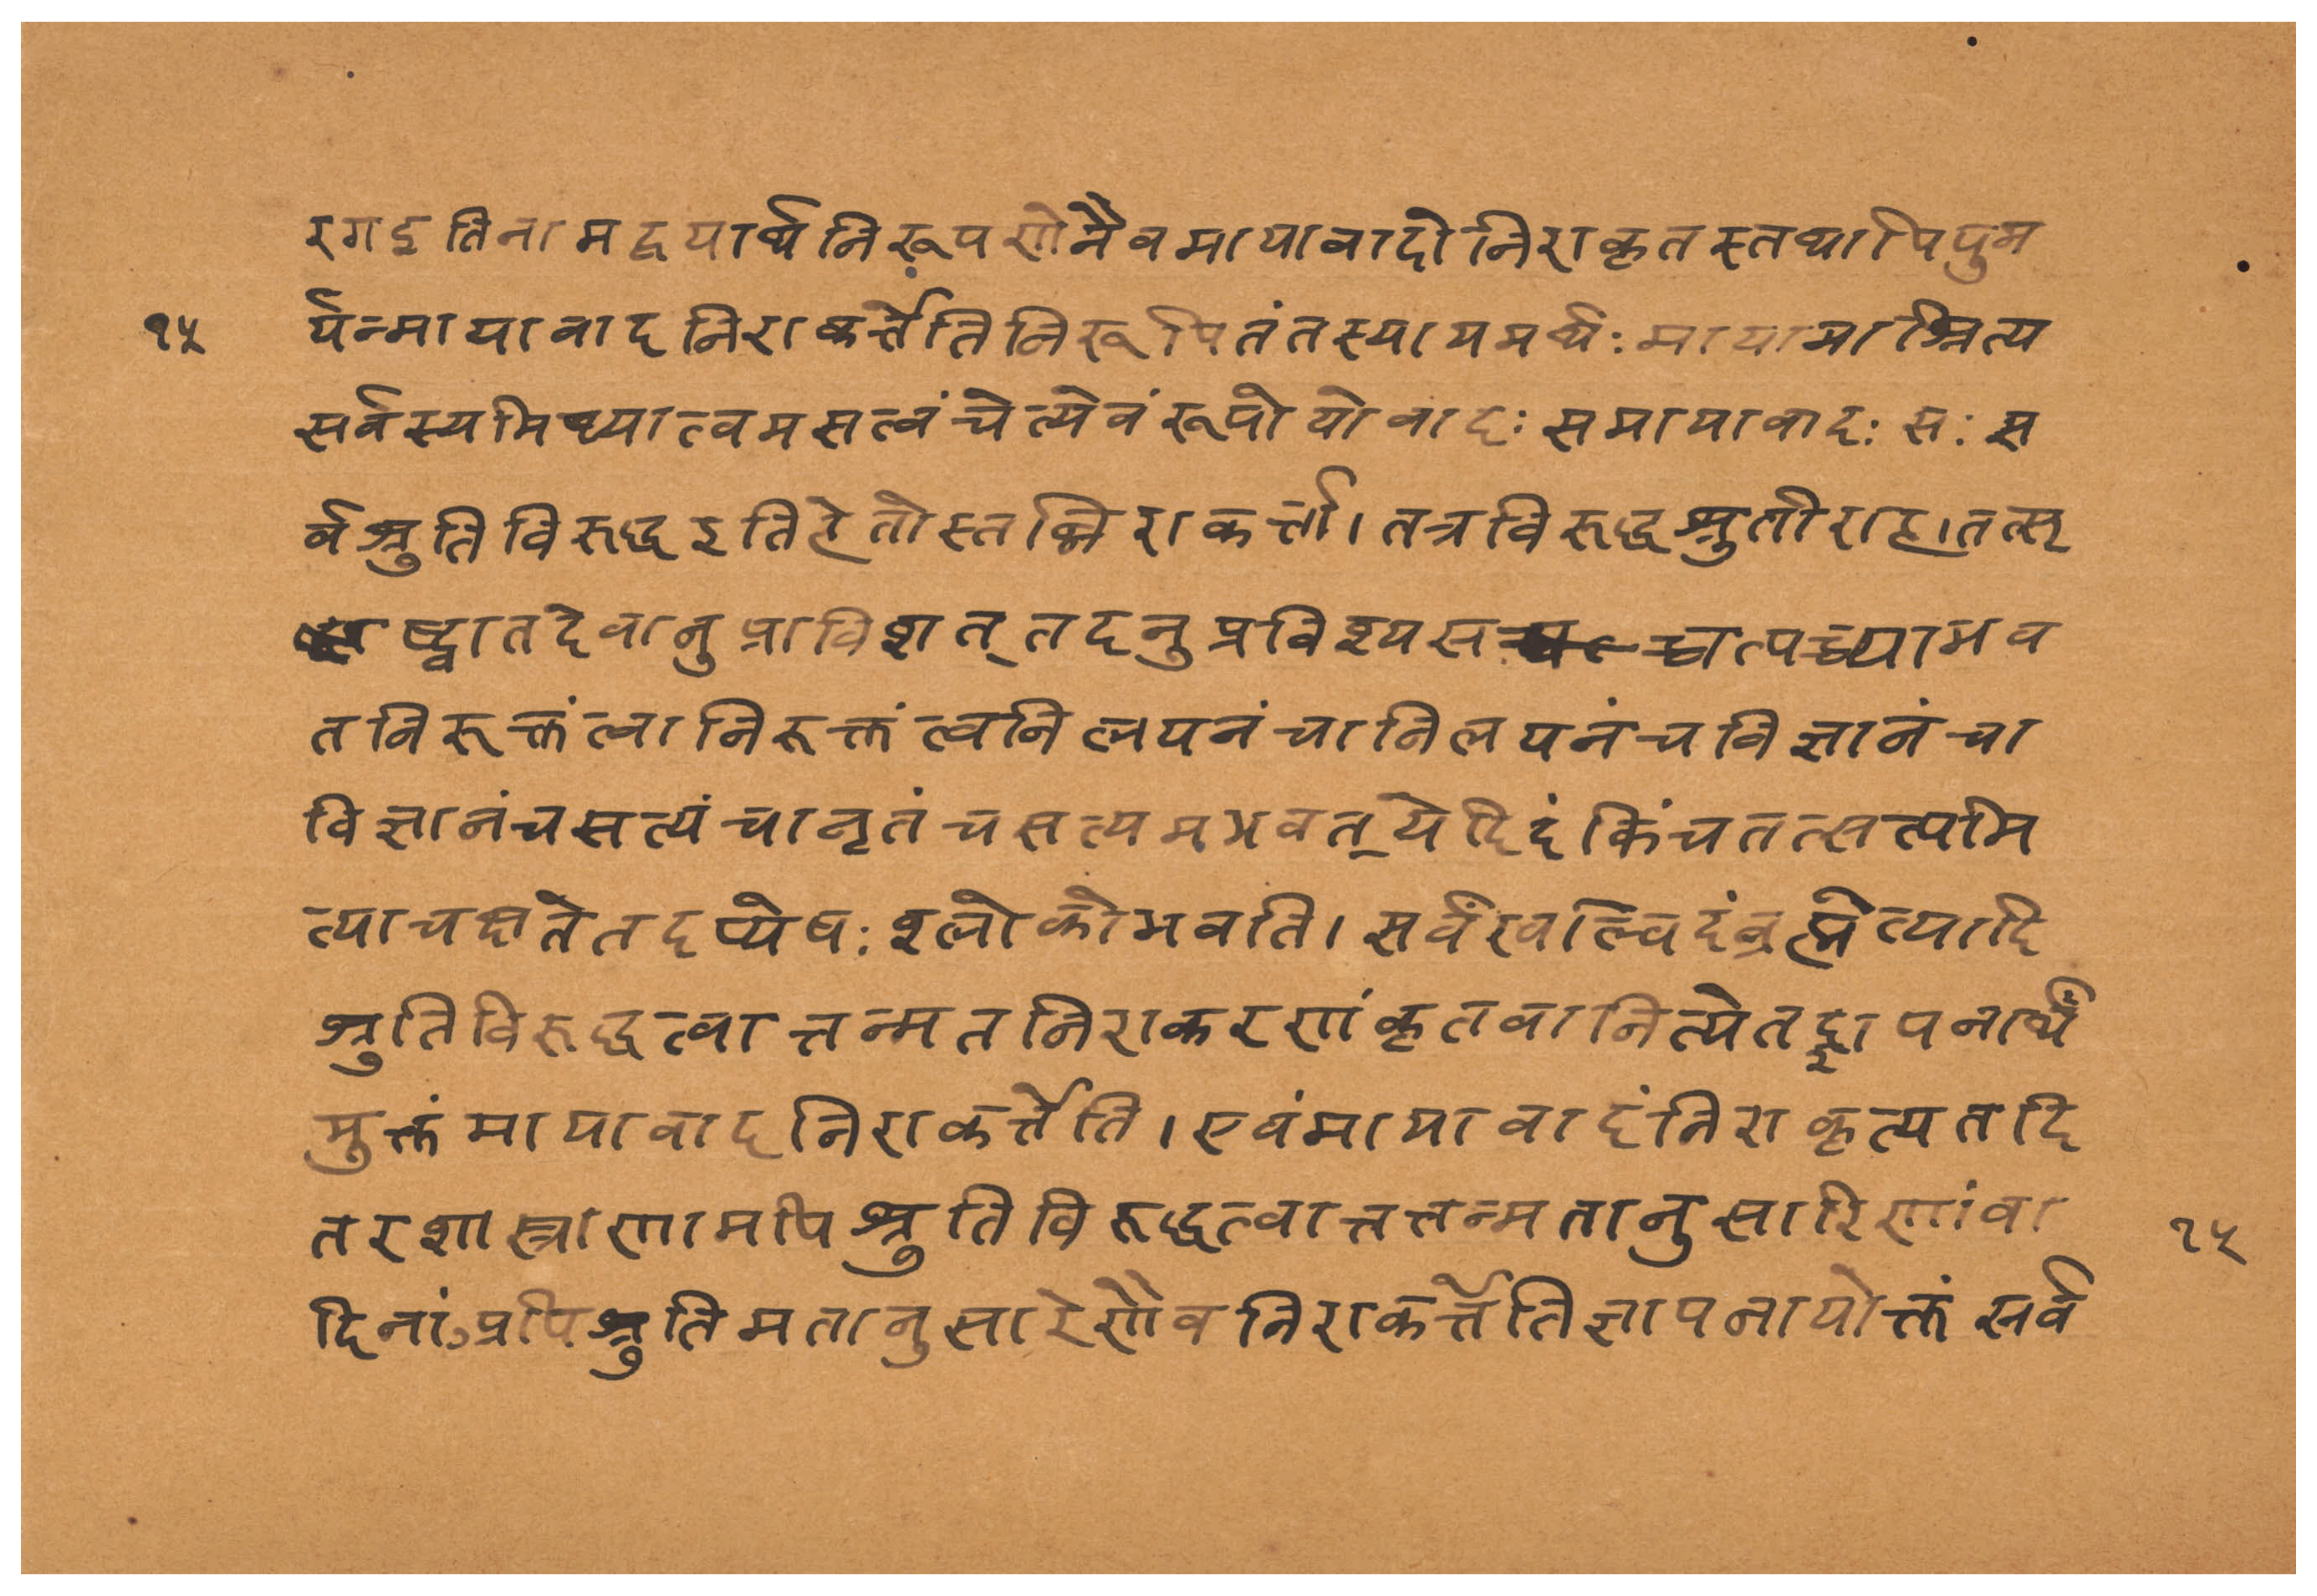 रगइतिनामद्वयार्थनिरूपणेनैवमायावादोनिराकृतस्तथापिपुम
१५ र्यन्मायावादनिराकर्त्तेतिनिरूपितंतस्यायमर्थः मायामाश्रित्य
सर्वस्यमिथ्यात्वमसत्वंचेत्येवंरूपोयोवादः समायावादः सः स
र्वश्रुतिविरूद्धइतिहेतोस्तन्निराकर्त्ता। तत्रविरूद्धश्रुतीराह।तत्सृ
ष्ट्वातदेवानुप्राविशत् तदनुप्रविश्यसच्चत्यच्चाभव
तनिरूक्तंत्वानिरूक्तंत्वनिलयनंचानिलयनंचविज्ञानंचा
विज्ञानंचसत्यंचानृतंचसत्यमभवत् येदिदंकिंचतत्सत्यमि
त्याचक्षतेतदप्येषः श्लोकोभवति। सर्वंखल्विदंब्रह्मेत्यादि
श्रुतिविरूद्धत्वात्तन्मतनिराकरणंकृतवानित्येतद्ज्ञापनार्थ
मुक्तंमायावादनिराकर्त्तेति। एवंमायावादंनिराकृत्यतदि
तरशास्त्राणामपिश्रुतिविरूद्धत्वात्तत्तन्मतानुसारिणांवा १५
दिनांऽप्रपिश्रुतिमतानुसारेणैवनिराकर्त्तेतिज्ञापनायोक्तं सर्व